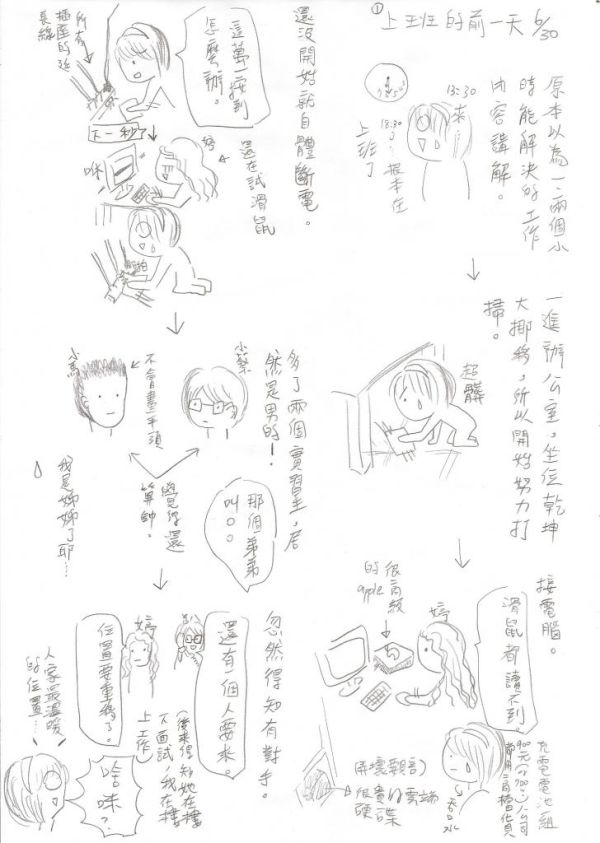 ① 上班的前一天 6/30
原本以為一、兩個小
時能解決的工作
內容講解。
13:30
來…
18:30
了，根本在
上班了
一進辦公室，坐位乾坤
大挪移，所以開始努力打
掃。
超髒
接電腦。
滑鼠都讀不到。
婷
很高級
的apple
充電電池組
公司
都用高檔貨
吞口水
(弄壞觀音)
很貴的雲端
硬碟
還沒開始就自體斷電。
這萬一按到
怎麼辦。
所有
插座的延
長線
下一秒了
婷
還在試滑鼠
咻
拍
多了兩個實習生，居
然是男的！
小蔡
小馬
不會畫平頭
覺得還
算帥。
那個弟弟
叫○○
我是姊姊了耶…
忽然得知有對手。
還有一個人要來。
(後來得知她在樓
下面試，我在樓
上工作)
婷
位置要重搞了。
人家最溫暖
的位置…
啥咪？